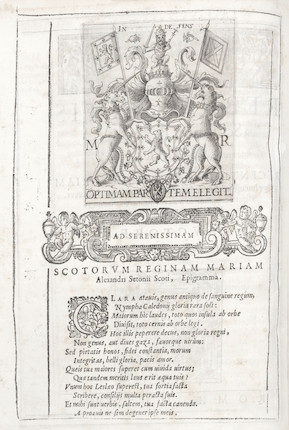 IN DEFENS
M R
OPTIMAM PARTEM ELEGIT.
AD SERENISSIMAM
SCOTORVM REGINAM MARIAM
Alexandri Setonii Scoti, Epigramma.
CLARA atauis, genus antiquo de sanguine regum,
Nympha Caledonij gloria rara soli:
Maiorum hic laudes, toto quos insula ab orbe
Diuisit, toto cernis ab orbe legi.
Hoc illis peperere decus, non gloria regni,
Non genus, aut diues gaza, fauorque uirûm:
Sed pietatis honos, fidei constantia, morum
Integritas, belli gloria, pacis amor.
Queis tua maiores superet cum uiuida uirtus;
Quaenam meritis laus erit aequa tuis?
Vnum hoc Leslaeo superest, tua fortia facta
Scribere, consilijs multa peracta suis.
Et mihi sunt uerbis, saltem, tua facta canenda,
A proauis ne sim degener ipse meis.